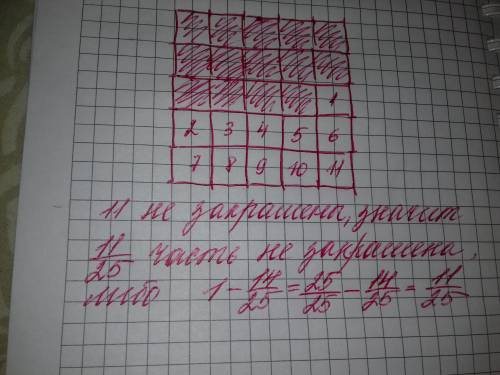 1
2 3 4 5 6
7 8 9 10 11
11 не закрашена, значит
11/25 часть не закрашена,
либо 1 - 14/25 = 25/25 - 14/25 = 11/25